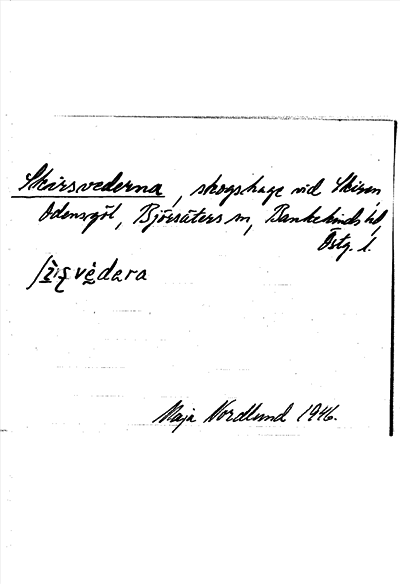 Skirsvederna, skogshage vid Skiren,
Odensgöl, Björsäters sn, Bankekinds hd,
Östg. l.
vèdara
Maja Nordlund 1946.